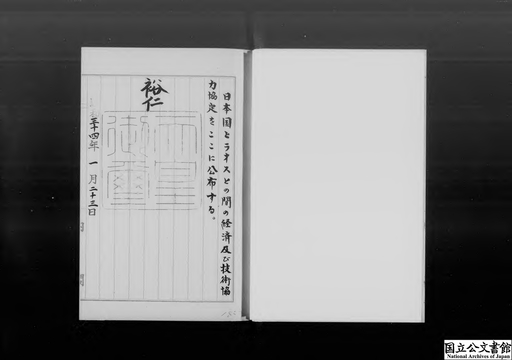 日本国とラオスとの間の経済及び技術協
力協定をここに公布する。
裕仁
天皇
御璽
三十四年一月二十三日
国立公文書館
National Archives of Japan